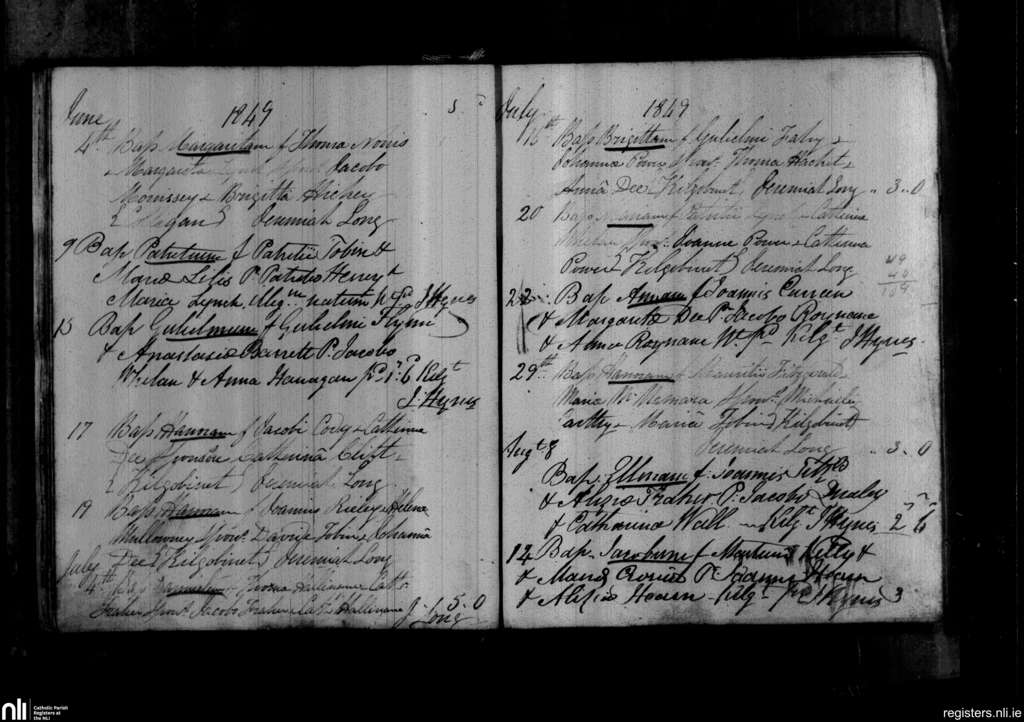 June 1849 5
4th Bap Margaretam f Thoma Norris
& Margarita Lynch Spons Jacobo
Morrissey & Brigitta
Jeremiah Long
9 Bap Patritium f Patritii Tobin &
Maria P Patritio Henry &
Maria Lynch natum J Hynes
15 Bap Gulielmum f Gulielmi Flynn
& Anastasia Barrett P. Jacobo
Whelan & Anna Hanagan pd 1" 6 Kilgt
J. Hynes
17 Bap Hannam f Jacobi Cody & Catherina
Dee Sponsor Catherina Clift
(Kilgobinet) Jeremiah Long
19 Bap Hannam f Joannis Rieley & Helena
Mullowney Spons. David Tobin & Johanna
July Dee (Kilgobinet) Jeremiah Long
4th Bap Thoma & Cath
Spons Jacobo & Cath Hallinane J. Long 5. 0
July 1849
16th Bap Brigittam f Gulielmi Fahy &
Johanna Power Spons. Thoma Hachet &
Anna Dee (Kilgobinet) Jeremiah Long .. 3..0
20 Bap Mariam f Patritii Lynch & Catherina
Whelan Spons. Joanne Power & Catherina
Power (Kilgobinet) Jeremiah Long
22 Bap Annam f Joannis Curran
& Margarita Dee P. Jacobo Roynane
& Anna Roynane Kilgt J Hynes
29th Bap Hannam f Mauritii Fitzgerald
Maria McNamara Spons. Michaele
Carthy & Maria Tobin (Kilgobinet)
Jeremiah Long .. 3. 0
Augt 8
Bap Ellenam f. Joannis
& Alicia Fraher P. Jacobo Quealy
& Catharina Wall Kilgt J Hynes 2" 6
14 Bap. Jacobum f Martini Kelly &
& Maria P. Joanne Hearn
& Alicia Hearn Kilgt J Hynes 3
nli Catholic Parish
Registers at
the NLI
registers.nli.ie